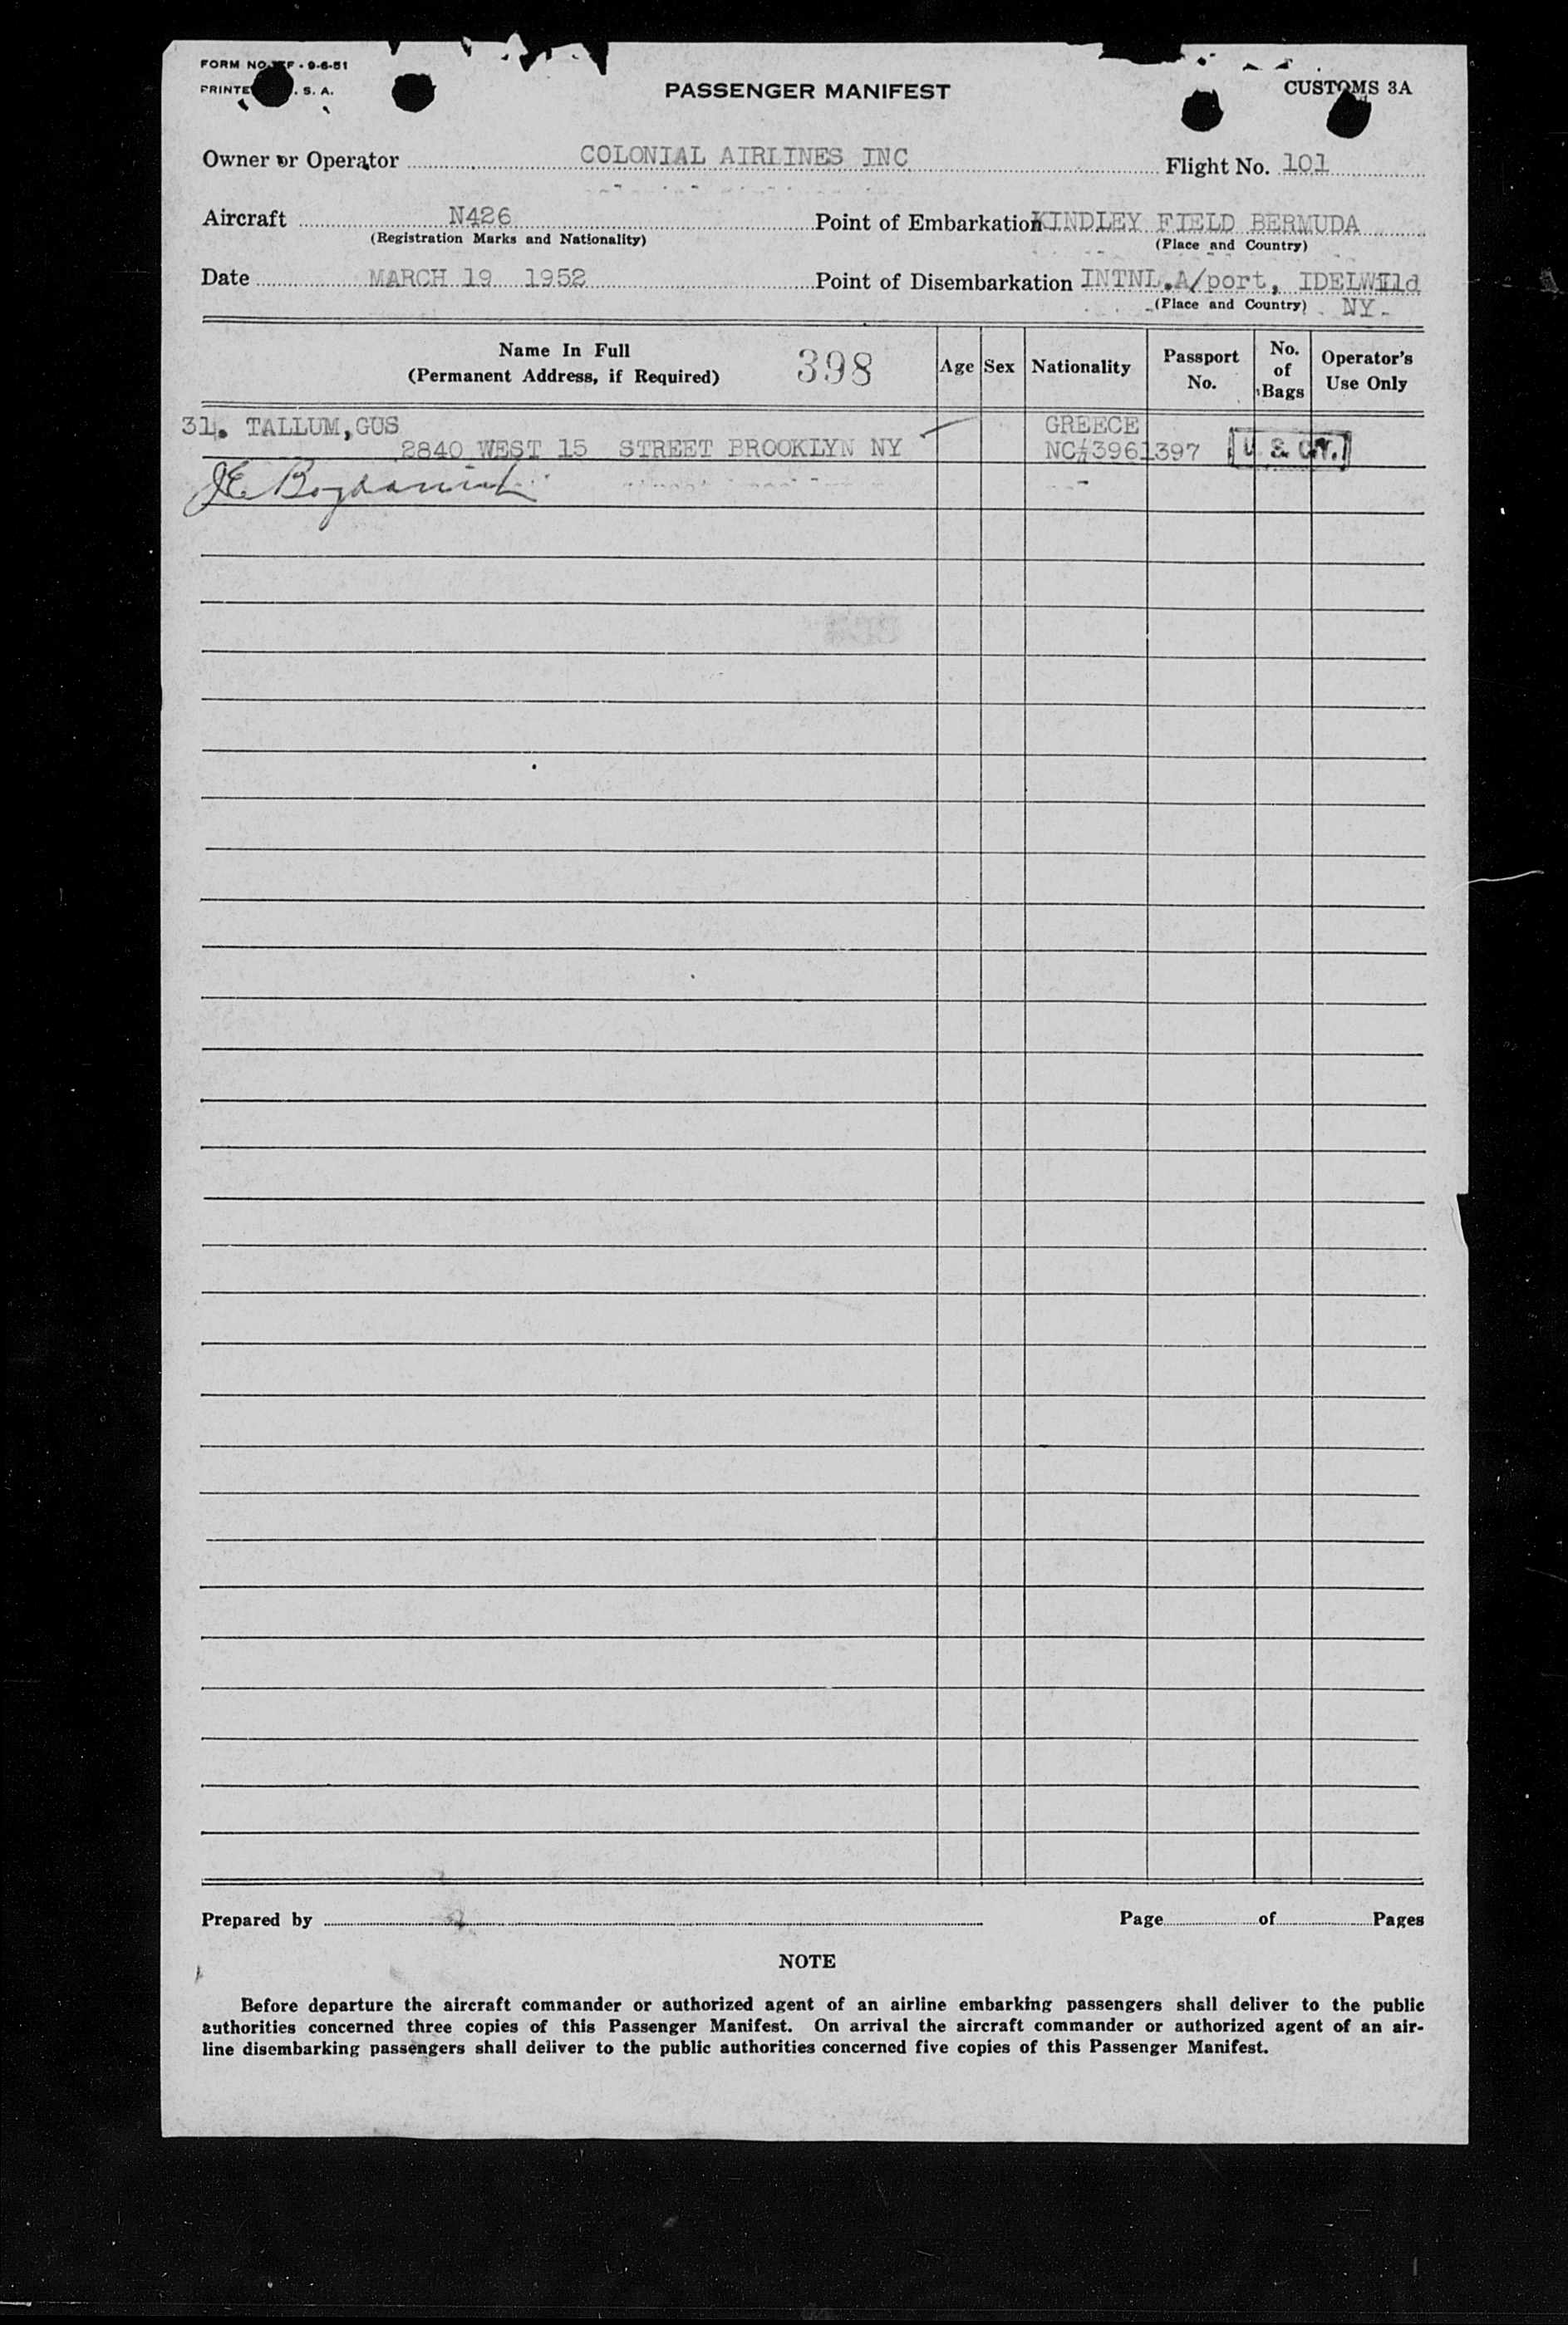 FORM NO. F - 9-6-51
PRINTE . S. A.
PASSENGER MANIFEST
CUSTOMS 3A
Owner or Operator COLONIAL AIRLINES INC Flight No. 101
Aircraft N426 Point of Embarkation KINDLEY FIELD BERMUDA
(Registration Marks and Nationality) (Place and Country)
Date MARCH 19 1952 Point of Disembarkation INTNL.A/port, IDELWIld
(Place and Country) NY.
Name In Full
(Permanent Address, if Required)
398
Age Sex Nationality
Passport
No.
No.
of
Bags
Operator's
Use Only
31. TALLUM,GUS GREECE
2840 WEST 15 STREET BROOKLYN NY NC#3961397
Prepared by Page of Pages
NOTE
Before departure the aircraft commander or authorized agent of an airline embarking passengers shall deliver to the public
authorities concerned three copies of this Passenger Manifest. On arrival the aircraft commander or authorized agent of an air-
line disembarking passengers shall deliver to the public authorities concerned five copies of this Passenger Manifest.